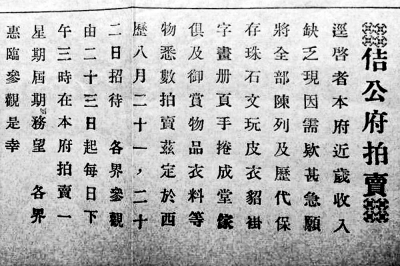 佶公府拍賣
逕啓者本府近歲收入
缺乏現因需欵甚急願
將全部陳列及歷代保
存珠石文玩皮衣貂褂
字畫册頁手捲成堂傢
俱及御賞物品衣料等
物悉數拍賣茲定於西
歷八月二十一，二十
二日招待 各界參觀
由二十三日起每日下
午三時在本府拍賣一
星期屆期務望 各界
惠臨參觀是幸